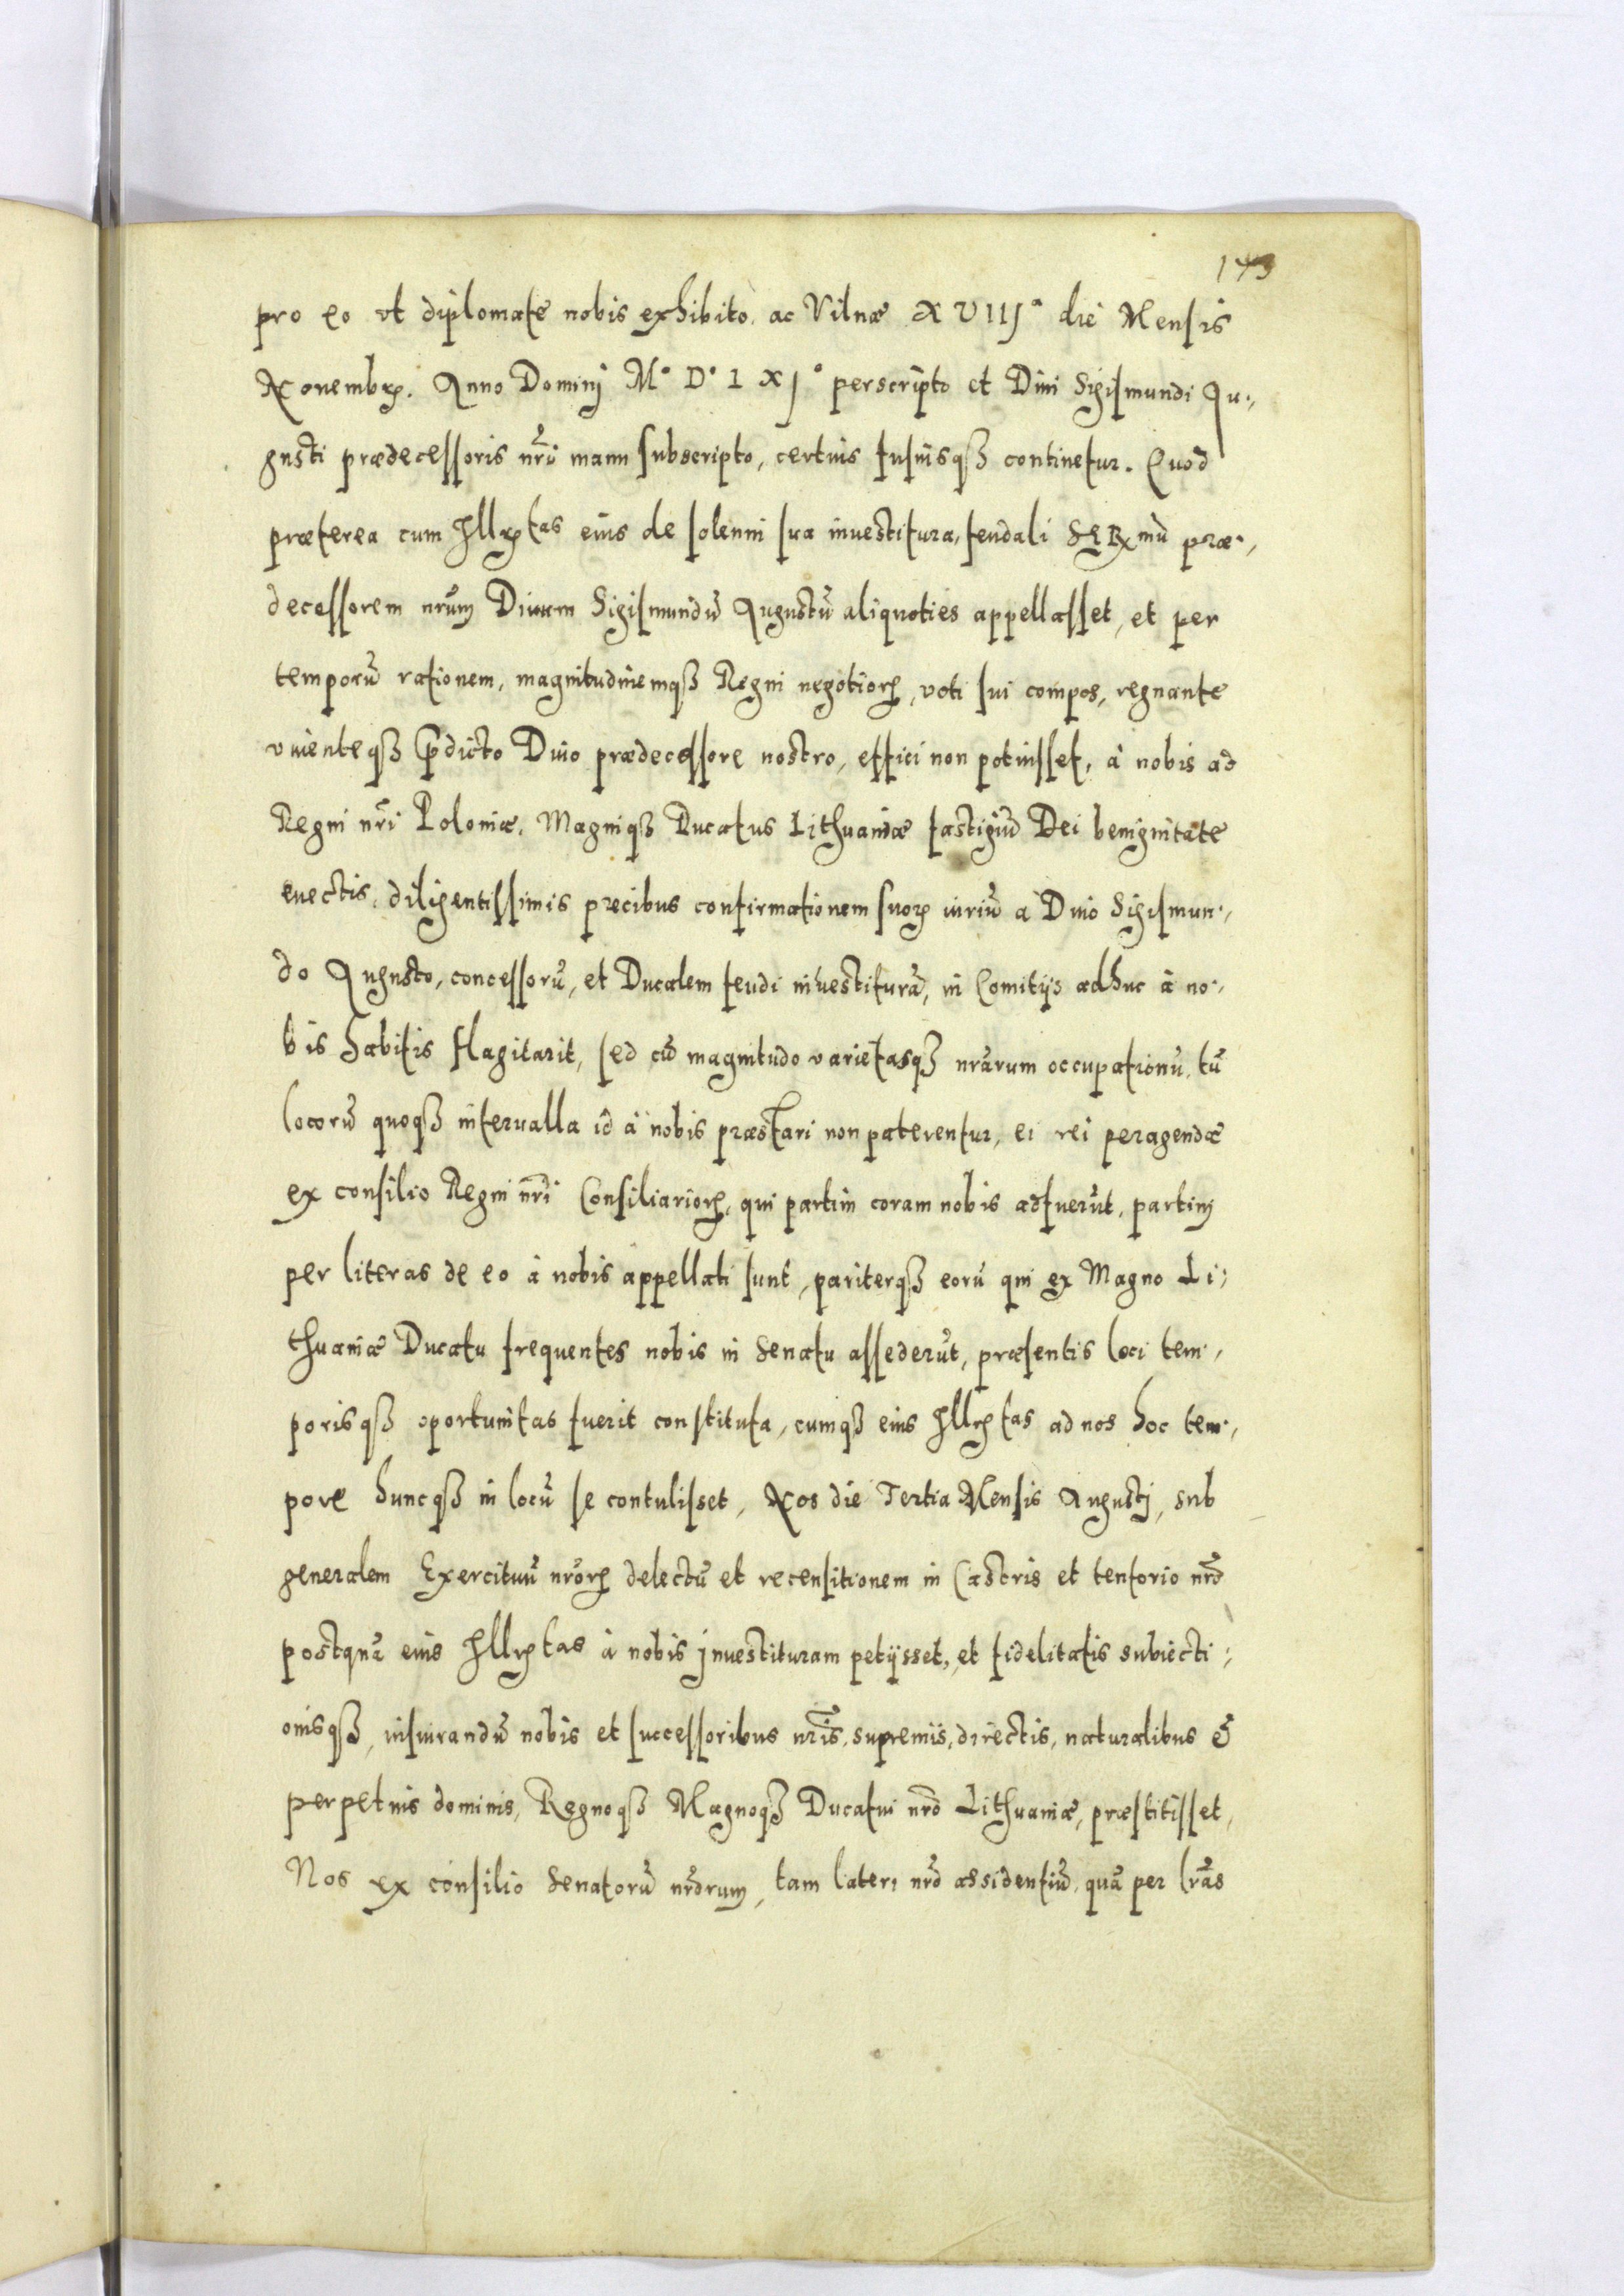 143
pro eo vt diplomate nobis exhibito, ac Vilnæ XVIIJª die Mensis
Nouembrꝭ. Anno Dominj M° D° LXJ° perscripto et Diui Sigismundi Au-,
gusti prædecessoris nr̃i manu subscripto, certius fusiusqꝫ continetur. Quod
præterea cum Jllrꝭtas eius de solenni sua inuestitura, feudali SERmũ præ-,
decessorem nr̃um Diuum Sigismundũ Augustũ aliquoties appellasset, et per
temporũ rationem, magnitudinemqꝫ Regni negotiorꝝ, voti sui compos, regnante
viuenteqꝫ p̃dicto Diuo prædecessore nostro, effici non potuisset, à nobis ad
Regni nr̃i Poloniæ, Magniqꝫ Ducatus Lithuaniæ fastigiũ Dei benignitate
euectis, diligentissimis precibus confirmationem suorꝝ iuriũ a Diuo Sigismun-,
do Augusto, concessorũ, et Ducalem feudi inuestiturã, in Comitijs adhuc à no-,
bis habitis flagitarit, sed cũ magnitudo varietasqꝫ nr̃arum occupationũ, tũ
locorũ quoqꝫ interualla id à nobis præstari non paterentur, ei rei peragendæ
ex consilio Regni nr̃i Consiliariorꝝ, qui partim coram nobis adfuerũt, partim
per literas de eo à nobis appellati sunt, pariterqꝫ eorũ qui ex Magno Li-,
thuaniæ Ducatu frequentes nobis in Senatu assederũt, præsentis loci tem-,
porisqꝫ oportunitas fuerit constituta, cumqꝫ eius Jllrꝭtas ad nos hoc tem-,
pore huncqꝫ in locũ se contulisset, Nos die Tertia Mensis Augustj, sub
generalem Exercituũ nr̃orꝝ delectũ et recensitionem in Castris et tentorio nr̃o
postquã eius Jllrꝭtas à nobis jnuestituram petijsset, et fidelitatis subiecti-,
onisqꝫ, iusiurandũ nobis et successoribus nr̃is, supremis, directis, naturalibus &
perpetuis dominis, Regnoqꝫ Magnoqꝫ Ducatui nr̃o Lithuaniæ, præstitisset,
Nos ex consilio Senatorũ nr̃orum, tam lateri nr̃o assidentiũ, quã per lr̃as